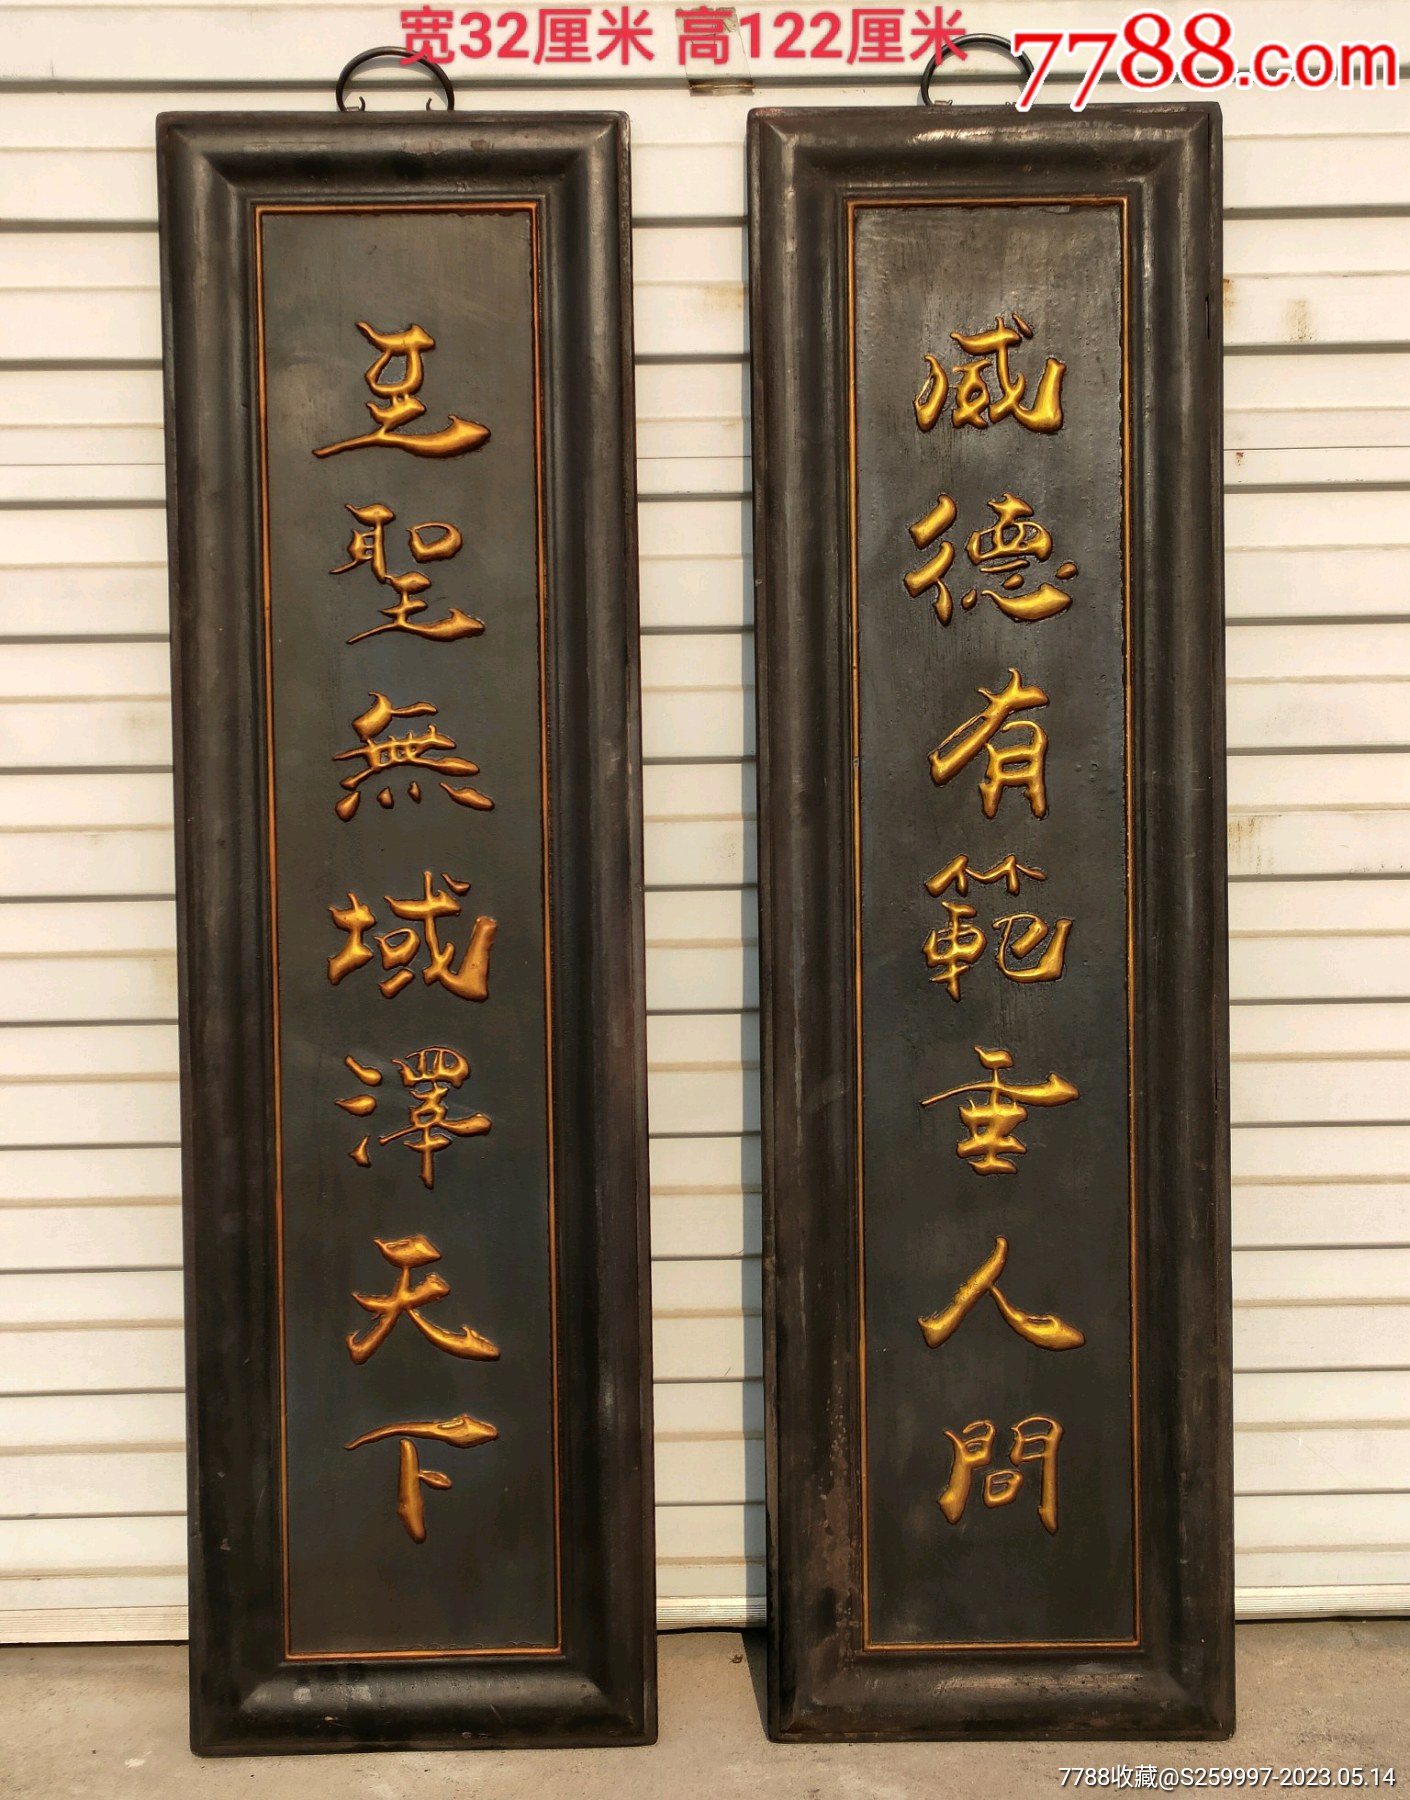 宽32厘米 高122厘米
7788.com
威德有範垂人間
至聖無域澤天下
7788收藏@S259997-2023.05.14